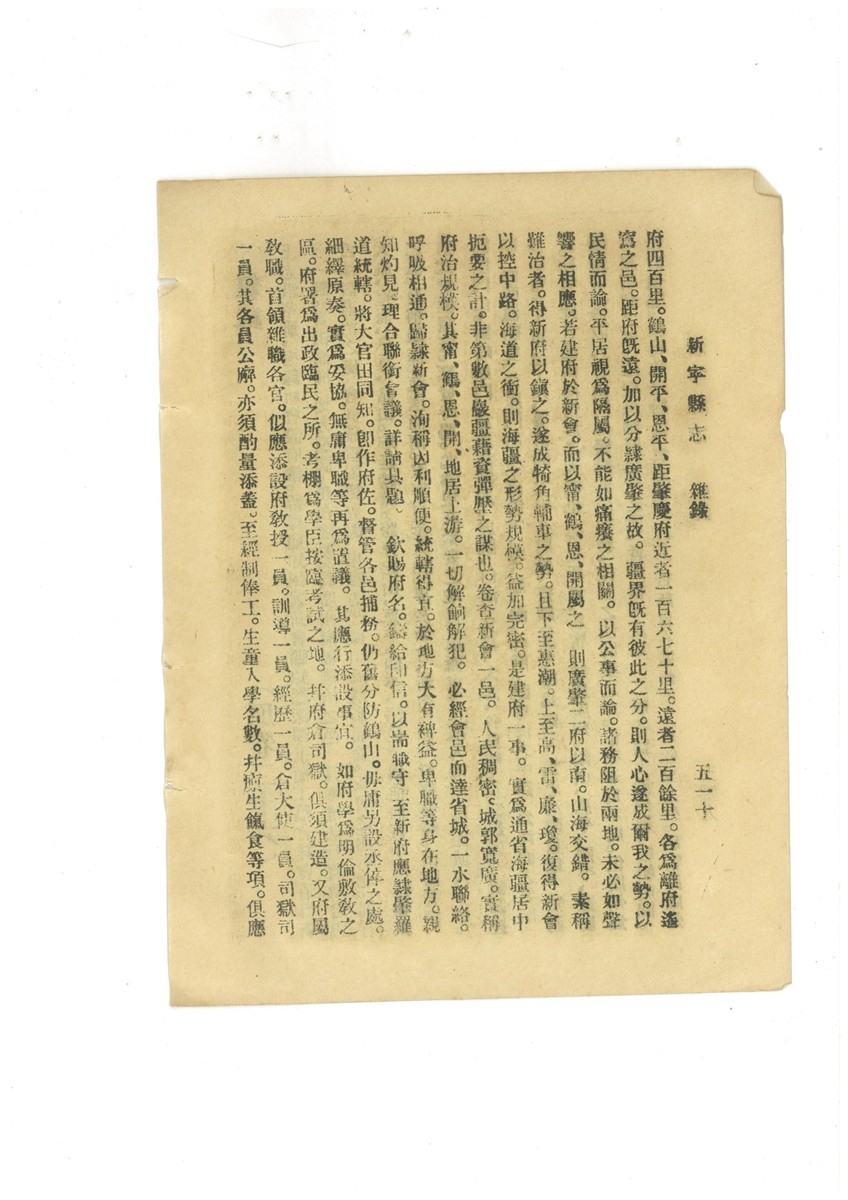 新寧縣志　雜錄　五一十
府四百里。鶴山、開平、恩平、距肇慶府近者一百六七十里。遠者二百餘里。各爲離府遙
寫之邑。距府旣遠。加以分隸廣肇之故。疆界旣有彼此之分。則人心遂成爾我之勢。以
民情而論。平居視爲隔屬。不能如痛癢之相關。以公事而論。諸務阻於兩地。未必如聲
響之相應。若建府於新會。而以甯、鶴、恩、開屬之　則廣肇二府以南。山海交錯。素稱
難治者。得新府以鎭之。遂成犄角輔車之勢。且下至惠潮。上至高、雷、廉、瓊。復得新會
以控中路。海道之衝。則海疆之形勢規模。益加完密。是建府一事。實爲通省海疆居中
扼要之計。非第數邑巖疆藉資彈壓之謀也。卷查新會一邑。人民稠密、城郭寬廣。實稱
府治規模。其甯、鶴、恩、開、地居上游。一切解餉解犯。必經會邑而達省城。一水聯絡。
呼吸相通。歸隸新會。洵稱因利順便。統轄得宜。於地方大有裨益。卑職等身在地方。親
知灼見。理合聯銜會議。詳請具題。　欽賜府名。鑄給印信。以耑職守　至新府應隸肇羅
道統轄。將大官田同知。卽作府佐。督管各邑捕務。仍舊分防鶴山。毋庸另設丞倅之處。
細繹原奏。實爲妥協。無庸卑職等再爲置議。其應行添設事宜。如府學爲明倫敷敎之
區。府署爲出政臨民之所。考棚爲學臣按臨考試之地。幷府倉司獄。俱須建造。又府屬
敎職。首領雜職各官。似應添設府敎授一員。訓導一員。經歷一員。倉大使一員。司獄司
一員。其各員公廨。亦須酌量添蓋。至經制俸工。生童入學名數。幷廩生餼食等項。俱應